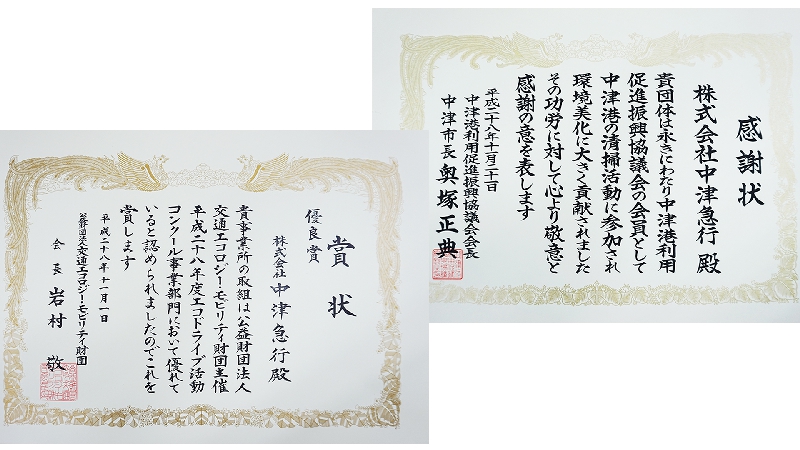 感謝状
株式会社中津急行 殿
貴団体は永きにわたり中津港利用
促進振興協議会の会員として
中津港の清掃活動に参加され
環境美化に大きく貢献されました
その功労に対して心より敬意と
感謝の意を表します
平成二十八年十一月二十一日
中津港利用促進振興協議会会長
中津市長 奥塚正典
賞状
優良賞
株式会社 中津急行殿
貴事業所の取組は公益財団法人
交通エコロジー・モビリティ財団主催
平成二十八年度エコドライブ活動
コンクール事業部門において優れて
いると認められましたのでこれを
賞します
平成二十八年十一月一日
公益財団法人交通エコロジー・モビリティ財団
会長 岩村 敬